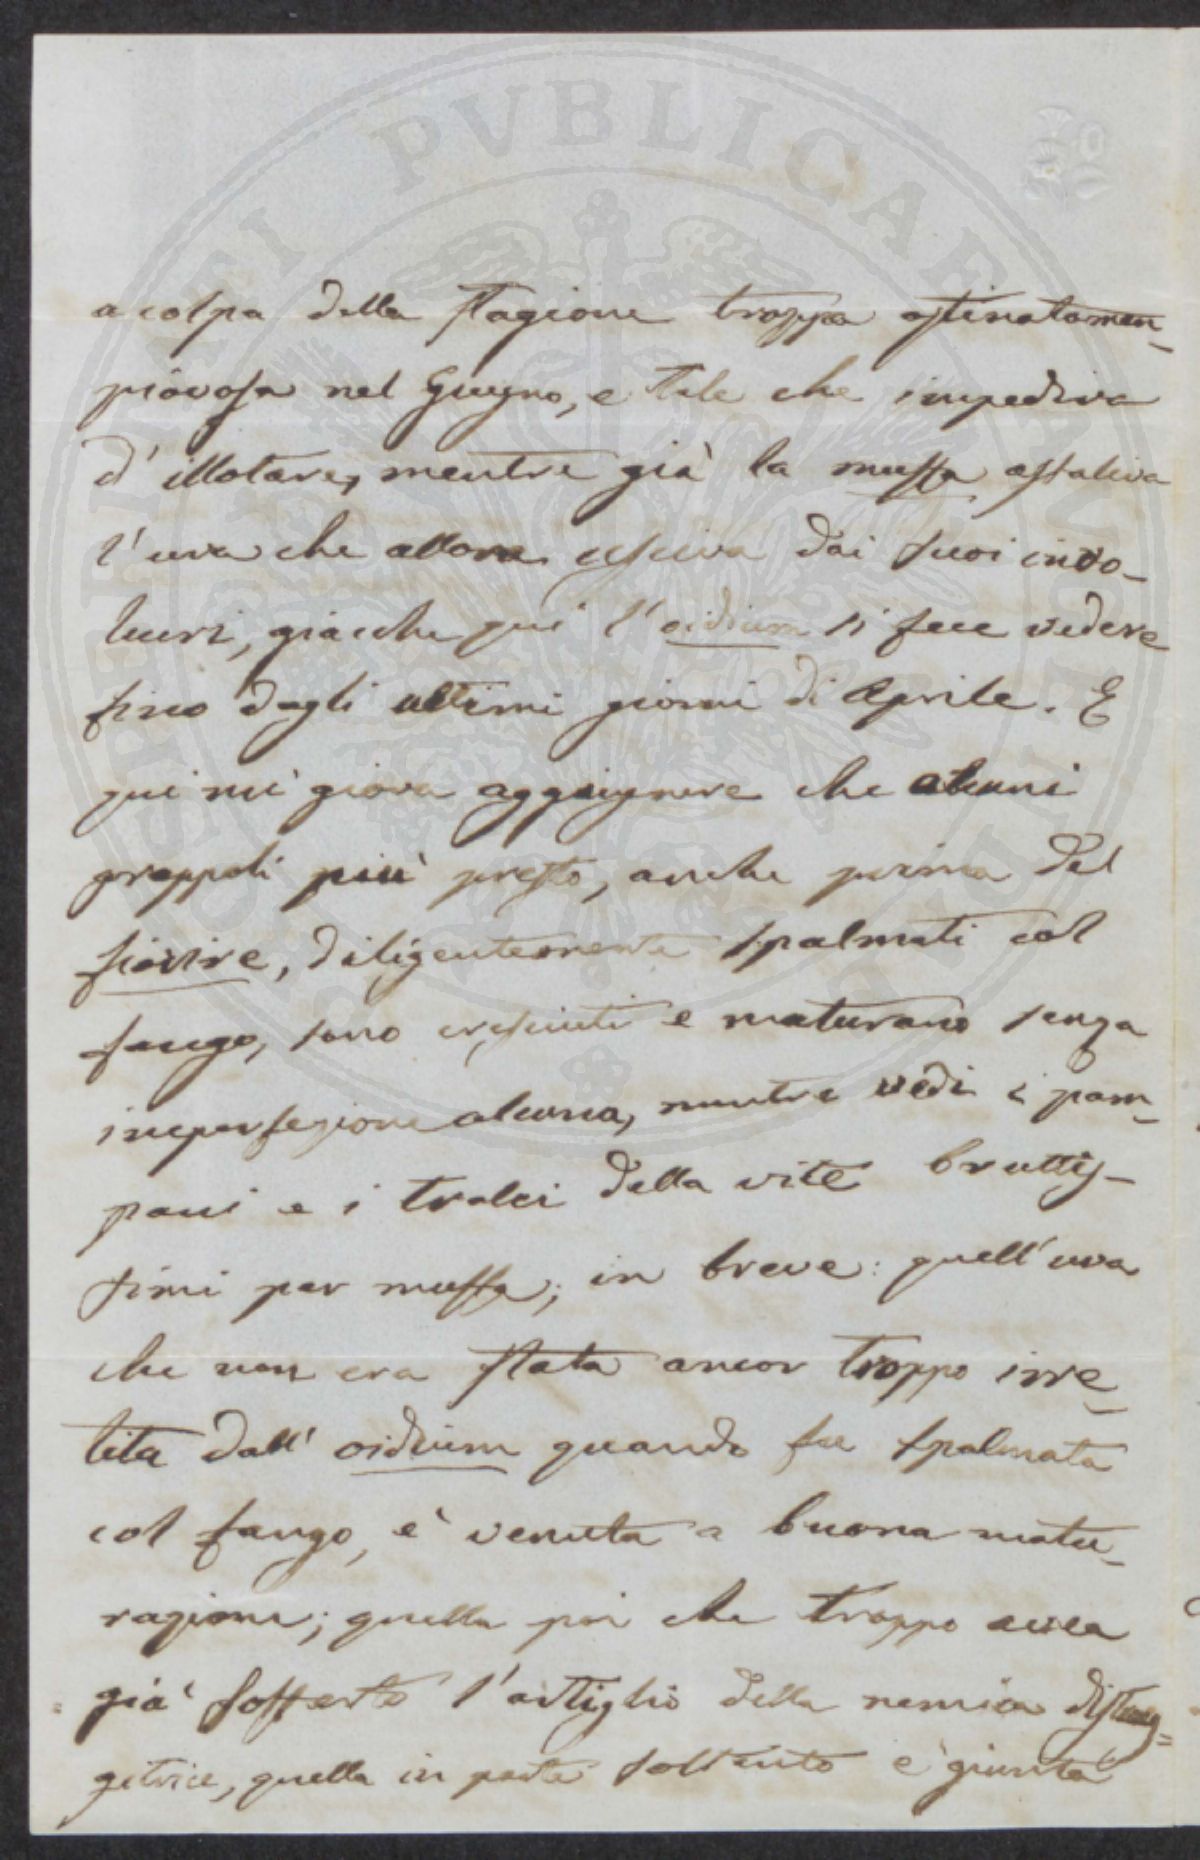 a colpa della stagione troppo ostinatamen-
piovosa nel Giugno, e tale che impediva
d'illotare, mentre già la muffa assaliva
l'uva che allora usciva dai suoi invo-
lucri, giacchè qui l'oidium si fece vedere
fino dagli ultimi giorni di Aprile. E
qui mi giova aggiugnere che alcuni
grappoli più presto, anche prima del
fiorire, diligentemente spalmati col
fango, sono cresciuti e maturano senza
imperfezione alcuna, mentre vedi i pam-
pani e i tralci della vite bruttis-
simi per muffa; in breve: quell'uva
che non era stata ancor troppo irre-
tita dall'oidium quando fu spalmata
col fango, è venuta a buona matu-
razione; quella poi che troppo avea
già sofferto l'artiglio della nemica distrug=
gitrice, quella in parte soltanto è giunta
PVBLICAE